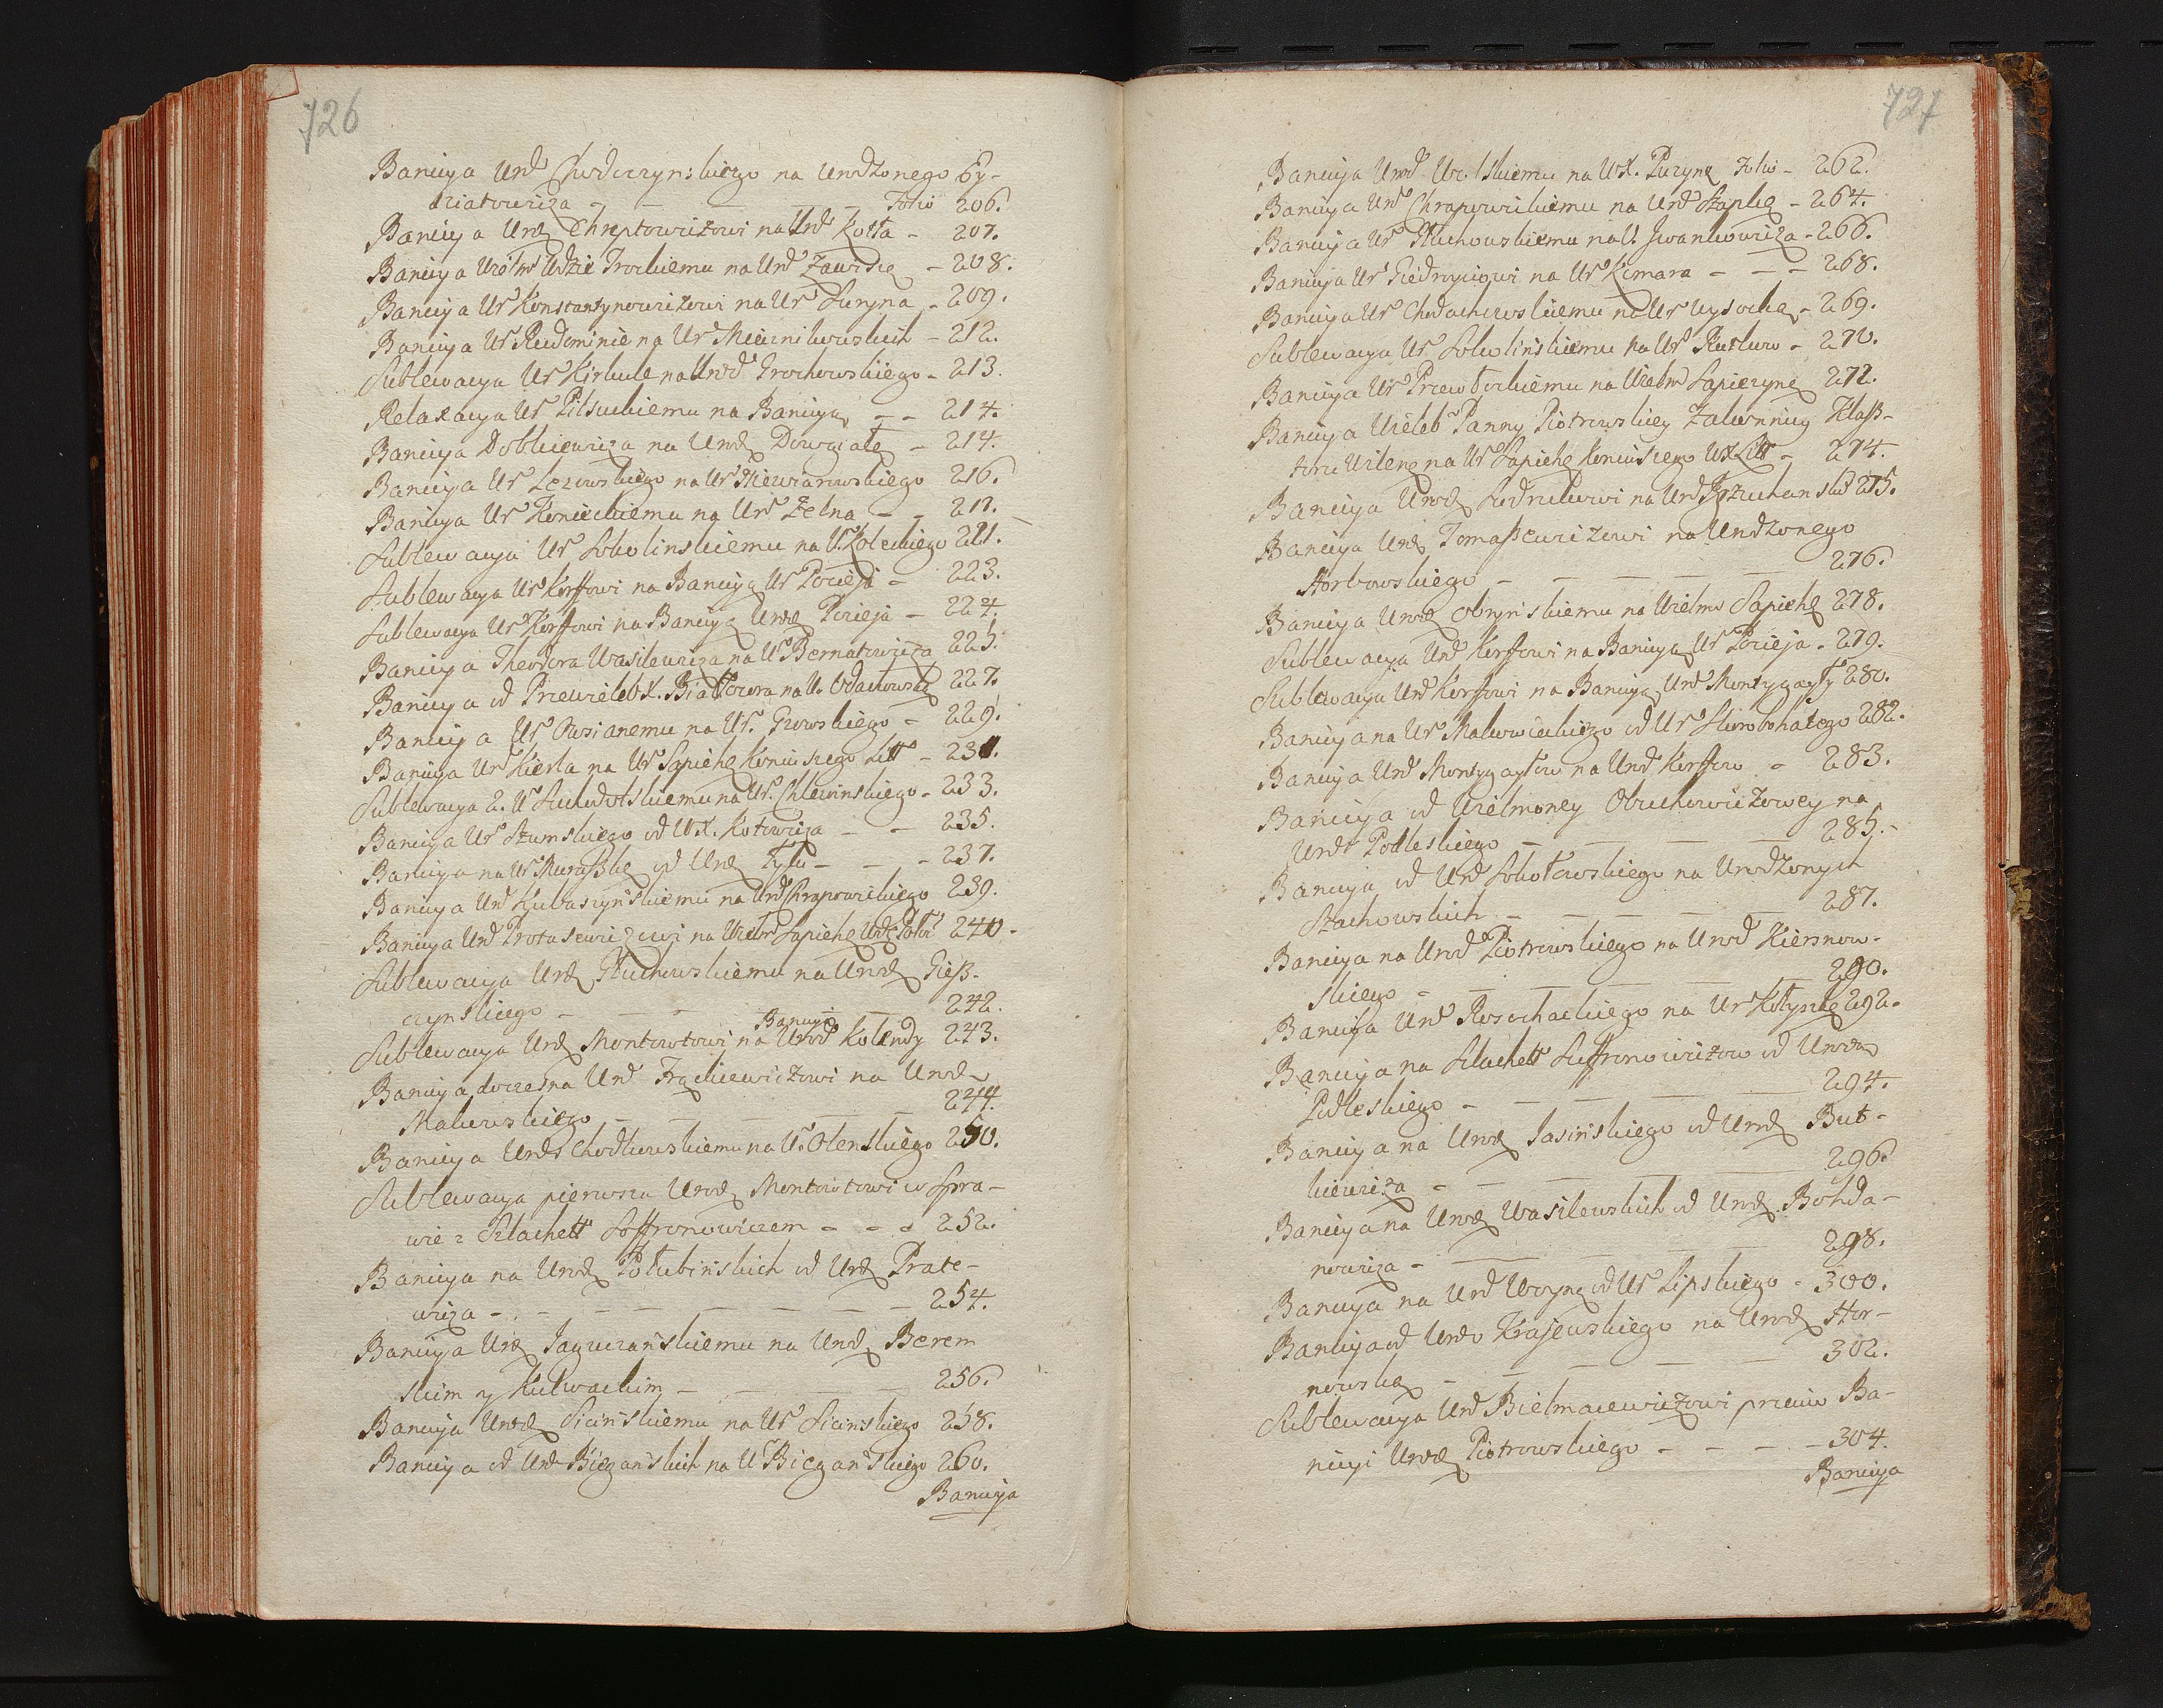 726
Banicya Urd Chodoczynskiego na Urodzonego By-
driatowicza - - - Folio 206.
Banicya Urd Chreptowiczowi na Urd Kotła - 207.
Banicya Wielm Wdzie Trockiemu na Urd Zawiszę - 208.
Banicya Ur Konstantynowiczowi na Ur Suryna - 209.
Banicya Ur Rudominie na Ur Miecznikowskich - 212.
Sublewacya Ur Kirkule na Urod Grochowskiego - 213.
Relaxacya Ur Pilsuckiemu na Banicyą - - 214.
Banicya Dobkiewicza na Urod Dowgiałę - 214.
Banicya Ur Lezowskiego na Ur Niewiarowskiego 216.
Banicya Ur Konieckiemu na Urd Zelna - - 217.
Sublewacya Ur Sokolinskiemu na U. Koleckiego 221.
Sublewacya Ur Korffowi na Banicyą Ur Pocieja - 223.
Sublewacya Ur Korffowi na Banicyą Urod Pocieja - 224.
Banicya Theodora Wasilewicza na U Bernatowicza 225.
Banicya od Przewieleb X. Białłozora na U. Odachowską 227.
Banicya Ur Owsianemu na Ur. Gzowskiego - 229.
Banicya Ur Kierla na Ur Sapiehę Koniuszego Litt - 231.
Sublewacya 2. U Suchodolskiemu na Ur. Chlewinskiego - 233.
Banicya Ur Szumskiego od W X. Kotowicza - - 235.
Banicya na Ur Muraszkę od Urod Tyſu - - - 237.
Banicya Urd Kubaszynskiemu na Urd Chrapowickiego 239.
Banicya Urd Protasewiczowi na Wielm Sapiehę Wdę Połoc 240.
Sublewacya Urd Głuchowskiemu na Urod Gieſz-
czynskiego - - - 242.
Banicyę
Sublewacya Urd Montowtowi na Urod Kolendy 243.
Banicya doczesna Urd Frąckiewiczowi na Urod
Makowskiego - - - 244.
Banicya Urd Chodkowskiemu na U. Olenskiego 250.
Sublewacya pierwsza Urod Montowtowi w Spra-
wie z Szlachett Soffronowiczem - - - 252.
Banicya na Urod Połubinskich od Urd Prate-
wicza - - - 254.
Banicya Urd Jaguczańskiemu na Urod Berem
skim y Kulwackim - - - 256.
Banicya Urod Sicińskiemu na Ur Sicinskiego 258.
Banicya od Urd Biegańskich na U Biegańskiego 260.
Banicya
727
Banicya Urod Wolskiemu na W X. Puzynę Folio - 262.
Banicya Urd Chrapowickiemu na Urd Szaplę - 264.
Banicya Ur Głuchowskiemu na U. Jwankowicza - 266.
Banicya Ur Giedroyciowi na Ur Komara - - - 268.
Banicya Ur Chodachowskiemu na Ur Wysockę - 269.
Sublewacya Ur Sokolińskiemu na Ur Rutkow - 270.
Banicya Ur Przewłockiemu na Wielm Sapiezynę 272.
Banicya Wieleb Panny Piotrowskiey Zakonnicy Klaſz-
toru Wileno na Ur Sapiehę Koniuszego W X Litt - 274.
Banicya Urod Ludrikowi na Urd Brzuchanską 275.
Banicya Urod Tomaſzewiczowi na Urodzonego
Horbowskiego - - - 276.
Banicya Urod Obryńskiemu na Wielm Sapiehę 278.
Sublewacya Urd Korffowi na Banicyą Ur Pocieja - 279.
Sublewacya Urd Korffowi na Banicyą Urd Montygayły 280.
Banicya na Ur Makowieckiego od Ur Skorobohatego 282.
Banicya Urd Montygayłow na Urd Korffow - 283.
Banicya od Wielmożney Obuchowiczowey na
Urod Podleskiego - - - 285.
Banicya od Urd Sokołowskiego na Urodzonych
Stachowskich - - - 287.
Banicya na Urod Piotrowskiego na Urod Kiersnow-
skiego - - - 290.
Banicya Urd Rosochackiego na Ur Kotyskę 292.
Banicya na Szlachett Suffronowiczow od Urodz
Podleskiego - - - 294.
Banicya na Urod Jasińskiego od Urod But-
kiewicza - - - 296.
Banicya na Urod Wasilewskich od Urod Bohda-
nowicza - - - 298.
Banicya na Urd Woynę od Ur Lipskiego - 300.
Banicya od Urdo Krajewskiego na Urod Hor-
nowską - - - 302.
Sublewacya Urd Bielmacewiczowi przeciw Ba-
nicyi Urod Piotrowskiego - - - 304.
Banicya